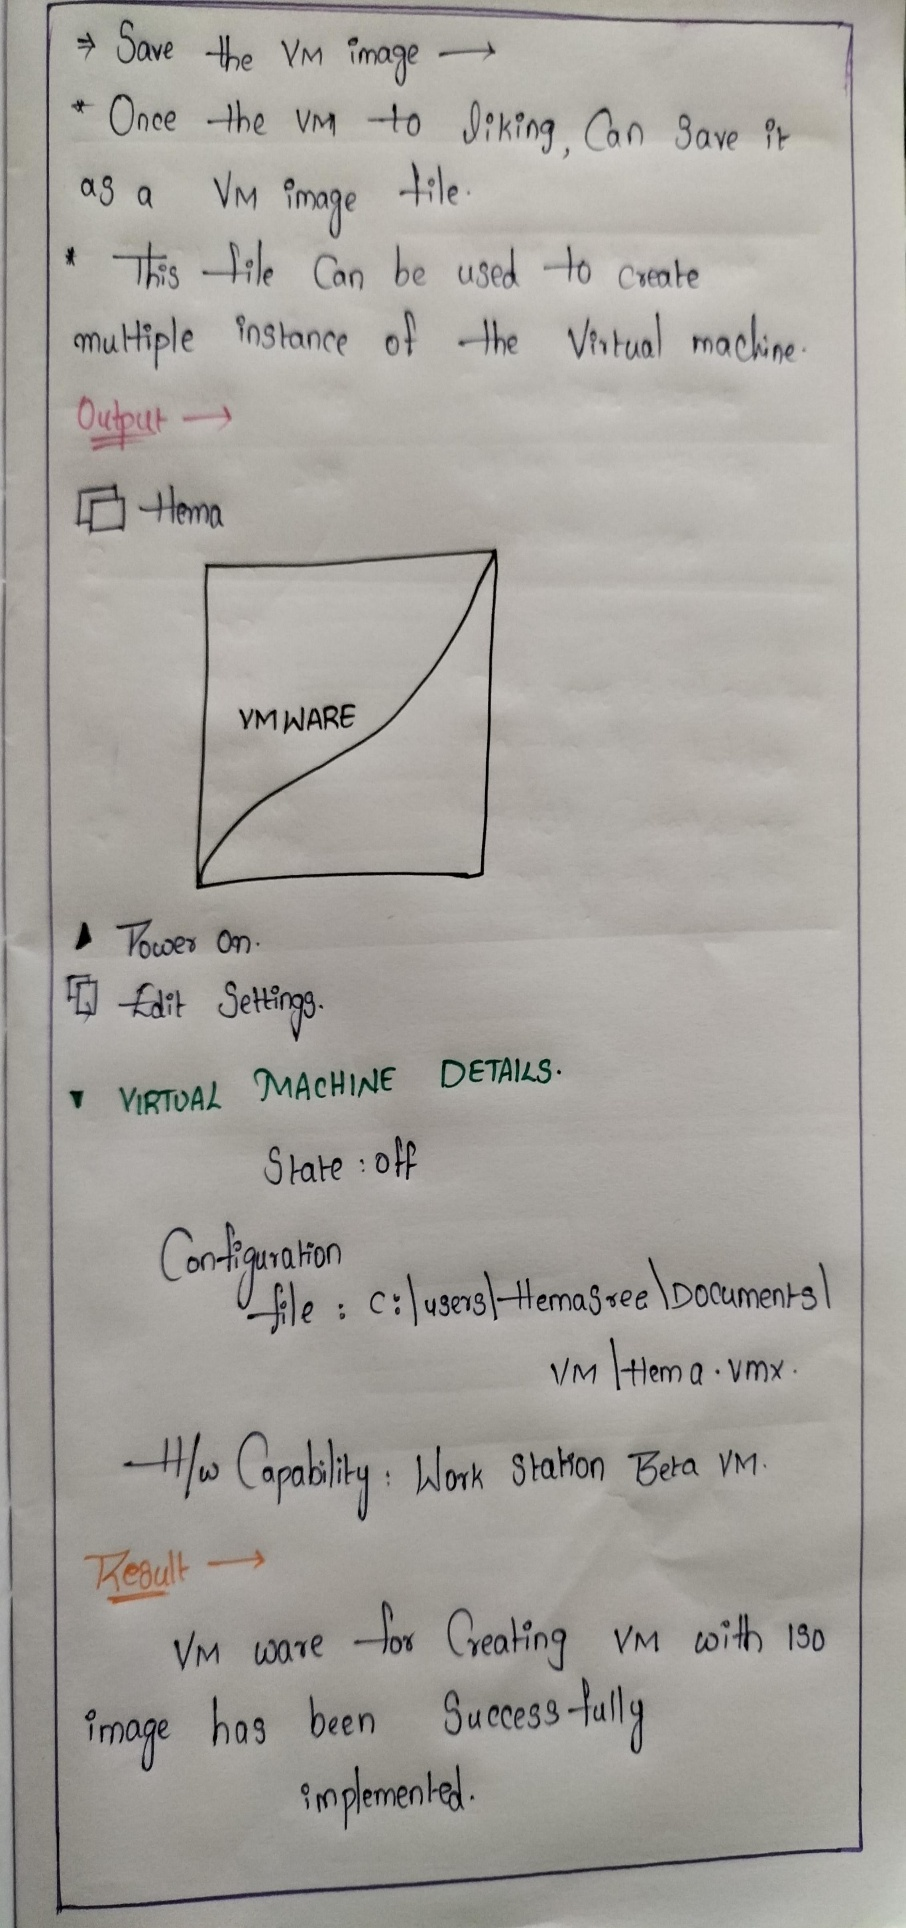 ⇒ Save the VM image →
* Once the VM to liking, Can save it
as a VM image file.
* This file Can be used to create
multiple instance of the Virtual machine.
Output →
Hema
VMWARE
Power on.
Edit Settings.
▾ VIRTUAL MACHINE DETAILS.
State : off
Configuration
file : C:\users\Hemasree\Documents\
VM\Hema.vmx.
H/w Capability : Work Station Beta VM.
Result →
VM ware for Creating VM with ISO
image has been Successfully
implemented.